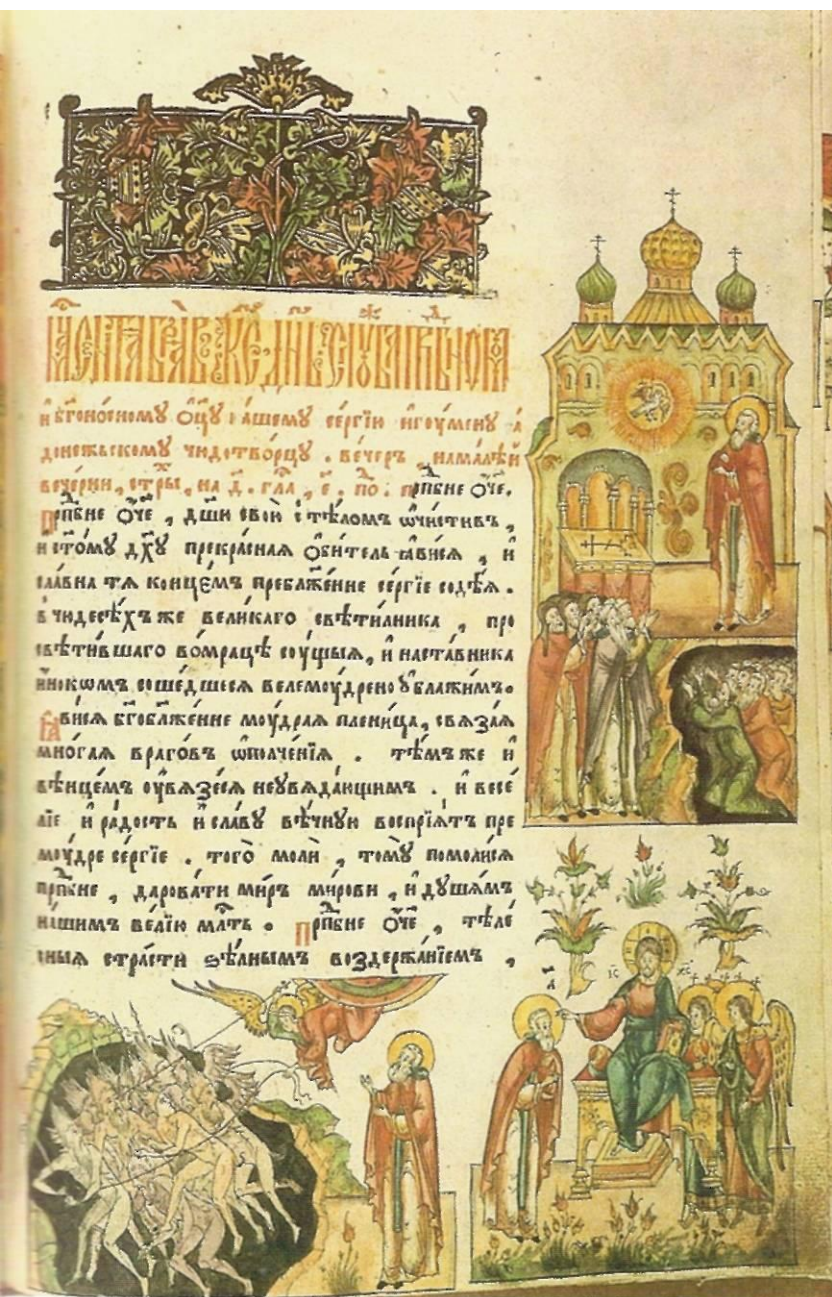 мⷭ҇ца сентѧбрѧ в ке днь ст҃а прпⷣбногѡ
и бг҃оносномꙋ ѻц҃ꙋ нашемꙋ се́ргїю игоу́менꙋ ра
донежьскомꙋ чюдотво́рцꙋ . ве́черъ , на ма́лѣй
вече́рни , стры̀ , на д҃ . гла̀ , є҃ . по̀ . прпⷣбне ѻ҆́ч҃е .
прпⷣбне ѻ҆́ч҃е , дш҃и свои̑ и тѣ́ломъ ѡ҆чи́стивъ ,
и ст҃о́мꙋ дх҃ꙋ прекра́снаѧ ѻ҆би́тель ꙗ҆ви́сѧ , и
сла́вна тѧ конце́мъ пребл҃же́нне се́ргїе содѣ́ѧ .
в чюдесѣ́хъ же вели́каго свѣти́лника , про
свѣти́вшаго во мра́цѣ соу́щыѧ , и наста́вника
и҆́нокѡмъ соше́дшесѧ велемоу́дрено ᲂу҆блажи́мъ .
ꙗ҆ви́сѧ бг҃обл҃же́нне моу́драѧ плени́ца , свѧза́ѧ
мнѡ́гаѧ врагѡ́въ ѡ҆полче́нїѧ . тѣ́мъ же и
вѣнце́мъ ᲂу҆вѧзе́сѧ неꙋвѧда́ющимъ . и весе́
лїе и ра́дость и сла́вꙋ вѣ́чнꙋю воспрїѧ́тъ пре
моу́дре се́ргїе . того̀ молѝ , томꙋ̀ помоли́сѧ
прпⷣбне , дарова́ти ми́ръ ми́рови , и дꙋша́мъ
на́шимъ ве́лїю мл҃ть . прпⷣбне ѻ҆́ч҃е , тѣле́
сныѧ стра́сти ѕѣ́лнымъ воздержа́нїемъ ,
І҃С Х҃С